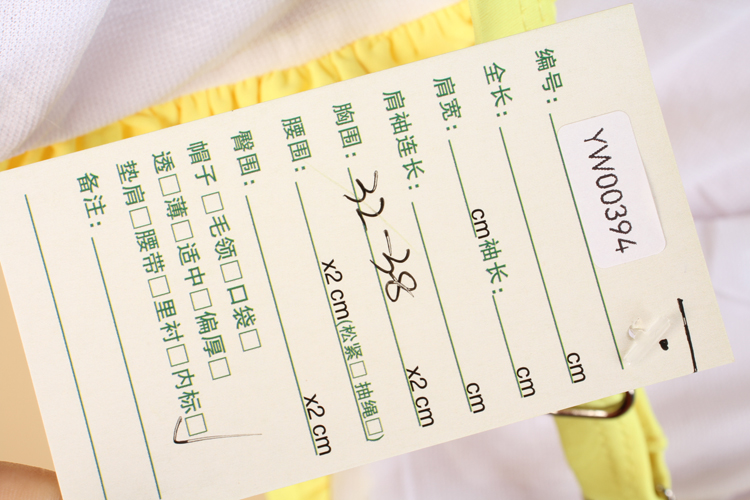 编号: YW00394
全长: cm
肩宽: cm 袖长: cm
肩袖连长: cm
胸围: 32-38 x2 cm
腰围: x2 cm (松紧□ 抽绳□)
臀围: x2 cm
帽子□ 毛领□ 口袋□
透□ 薄□ 适中□ 偏厚□
垫肩□ 腰带□ 里衬□ 内标□
备注: